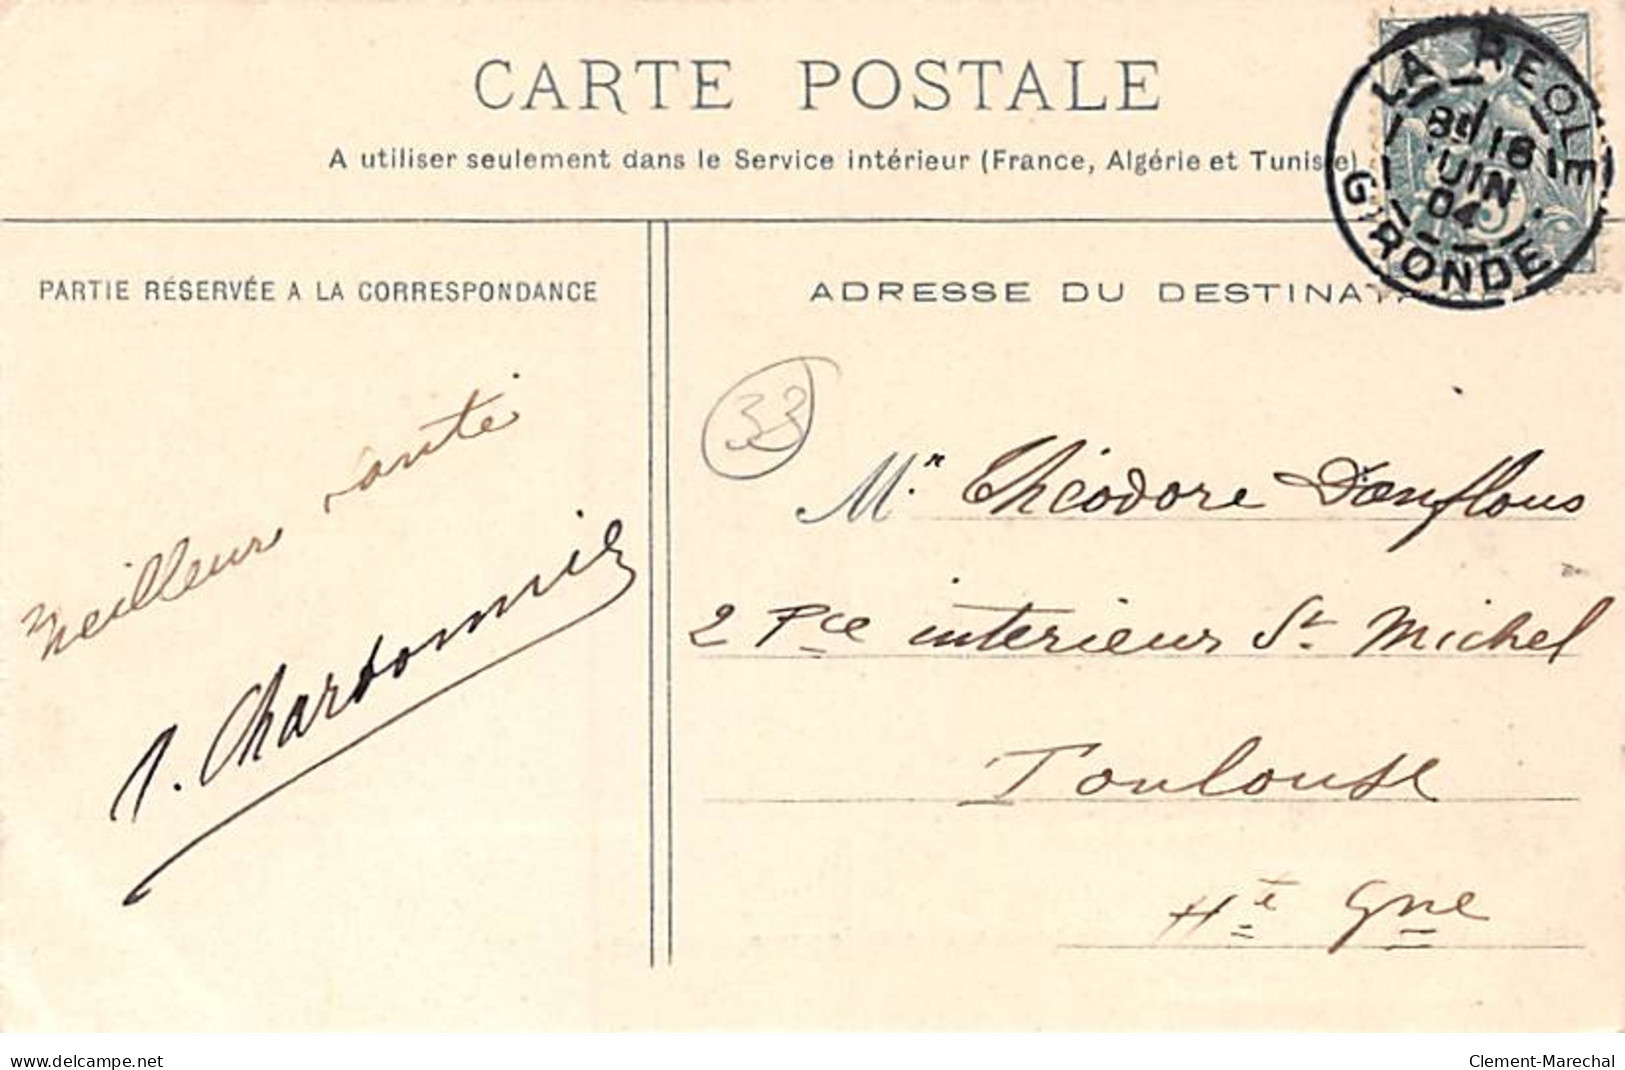 CARTE POSTALE
A utiliser seulement dans le Service intérieur (France, Algérie et Tunisie)
LA REOLE
8E 16
JUIN
04
GIRONDE
5
PARTIE RÉSERVÉE A LA CORRESPONDANCE
Meilleur santé
Charbonnié
ADRESSE DU DESTINATA
33
Mr. Théodore Danflous
2 Pce interieur St Michel
Toulouse
Hte Gne
www.delcampe.net
Clement-Marechal